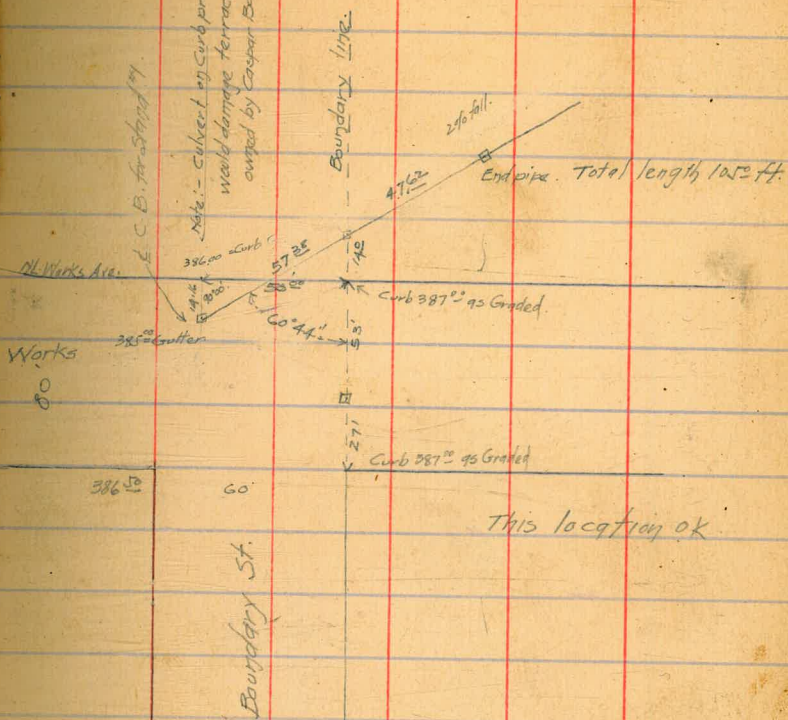 ¢ C. B. for Stand #1.
Note:- Culvert on Curb pr
would damage terrac
owned by Caspar Be
Boundary line.
2% fall.
End pipe. Total length 105.0 ft.
47.62
57.38
386.00 = Curb
NL Works Ave.
50.00
14.0
8.00
Curb 387.00 as Graded.
60°44'
385.00 Gutter
53'
Works
80'
27'
Curb 387.00 as Graded
386.50
60'
This location ok
Boundary St.